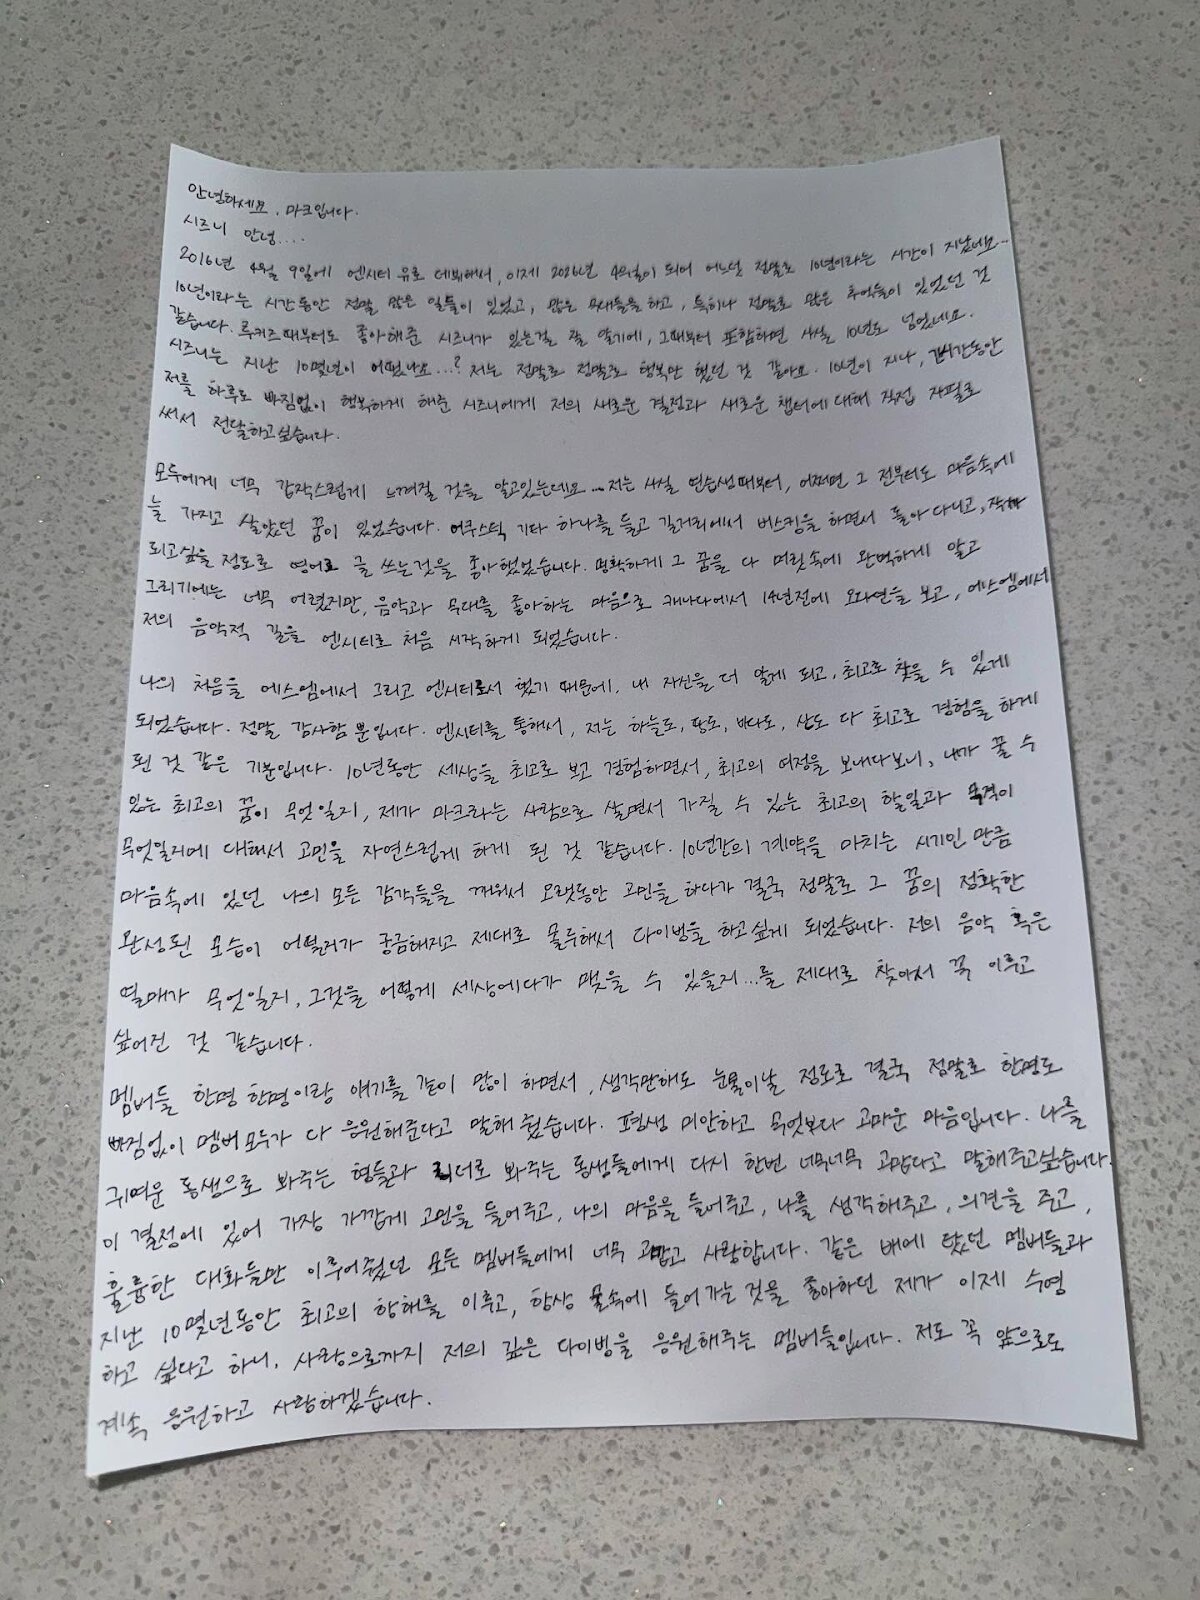 안녕하세요. 마크입니다.
시즈니 안녕....
2016년 4월 9일에 엔시티 유로 데뷔해서, 이제 2026년 4월이 되어 어느덧 정말로 10년이라는 시간이 지났네요...
10년이라는 시간동안 정말 많은 일들이 있었고, 많은 무대들을 하고, 특히나 정말로 많은 추억들이 있었던 것
같습니다. 루키즈때부터도 좋아해준 시즈니가 있는걸 잘 알기에, 그때부터 포함하면 사실 10년도 넘었네요.
시즈니는 지난 10몇년이 어땠나요...? 저는 정말로 정말로 행복만 했던 것 같아요. 10년이 지나, 그 시간동안
저를 하루도 빠짐없이 행복하게 해준 시즈니에게 저의 새로운 결정과 새로운 챕터에 대해 직접 자필로
써서 전달하고싶습니다.
모두에게 너무 갑작스럽게 느껴질 것을 알고있는데요... 저는 사실 연습생때부터, 어쩌면 그 전부터도 마음속에
늘 가지고 살았던 꿈이 있었습니다. 어쿠스틱 기타 하나를 들고 길거리에서 버스킹을 하면서 돌아 다니고, 작가
되고싶을 정도로 영어로 글 쓰는것을 좋아했었습니다. 명확하게 그 꿈을 다 머릿속에 완벽하게 알고
그리기에는 너무 어렸지만, 음악과 무대를 좋아하는 마음으로 캐나다에서 14년전에 오디션을 보고, 에스엠에서
저의 음악적 길을 엔시티로 처음 시작하게 되었습니다.
나의 처음을 에스엠에서 그리고 엔시티로서 했기 때문에, 내 자신을 더 알게 되고, 최고로 찾을 수 있게
되었습니다. 정말 감사할 뿐입니다. 엔시티를 통해서, 저는 하늘도, 땅도, 바다도, 산도 다 최고로 경험을 하게
된 것 같은 기분입니다. 10년동안 세상을 최고로 보고 경험하면서, 최고의 여정을 보내다보니, 내가 꿀 수
있는 최고의 꿈이 무엇일지, 제가 마크라는 사람으로 살면서 가질 수 있는 최고의 할일과 목적이
무엇일지에 대해서 고민을 자연스럽게 하게 된 것 같습니다. 10년간의 계약을 마치는 시기인 만큼
마음속에 있던 나의 모든 감각들을 깨워서 오랫동안 고민을 하다가 결국 정말로 그 꿈의 정확한
완성된 모습이 어떨지가 궁금해지고 제대로 몰두해서 다이빙을 하고싶게 되었습니다. 저의 음악 혹은
열매가 무엇일지, 그것을 어떻게 세상에다가 맺을 수 있을지...를 제대로 찾아서 꼭 이루고
싶어진 것 같습니다.
멤버들 한명 한명이랑 얘기를 같이 많이 하면서, 생각만해도 눈물이날 정도로 결국 정말로 한명도
빠짐없이 멤버 모두가 다 응원해준다고 말해 줬습니다. 평생 미안하고 무엇보다 고마운 마음입니다. 나를
귀여운 동생으로 봐주는 형들과 리더로 봐주는 동생들에게 다시 한번 너무너무 고맙다고 말해주고싶습니다.
이 결정에 있어 가장 가깝게 고민을 들어주고, 나의 마음을 들어주고, 나를 생각해주고, 의견을 주고,
훌륭한 대화들만 이루어줬던 모든 멤버들에게 너무 고맙고 사랑합니다. 같은 배에 탔던 멤버들과
지난 10몇년동안 최고의 항해를 이루고, 항상 물속에 들어가는것을 좋아하던 제가 이제 수영
하고 싶다고 하니, 사랑으로까지 저의 깊은 다이빙을 응원해주는 멤버들입니다. 저도 꼭 앞으로도
계속 응원하고 사랑하겠습니다.